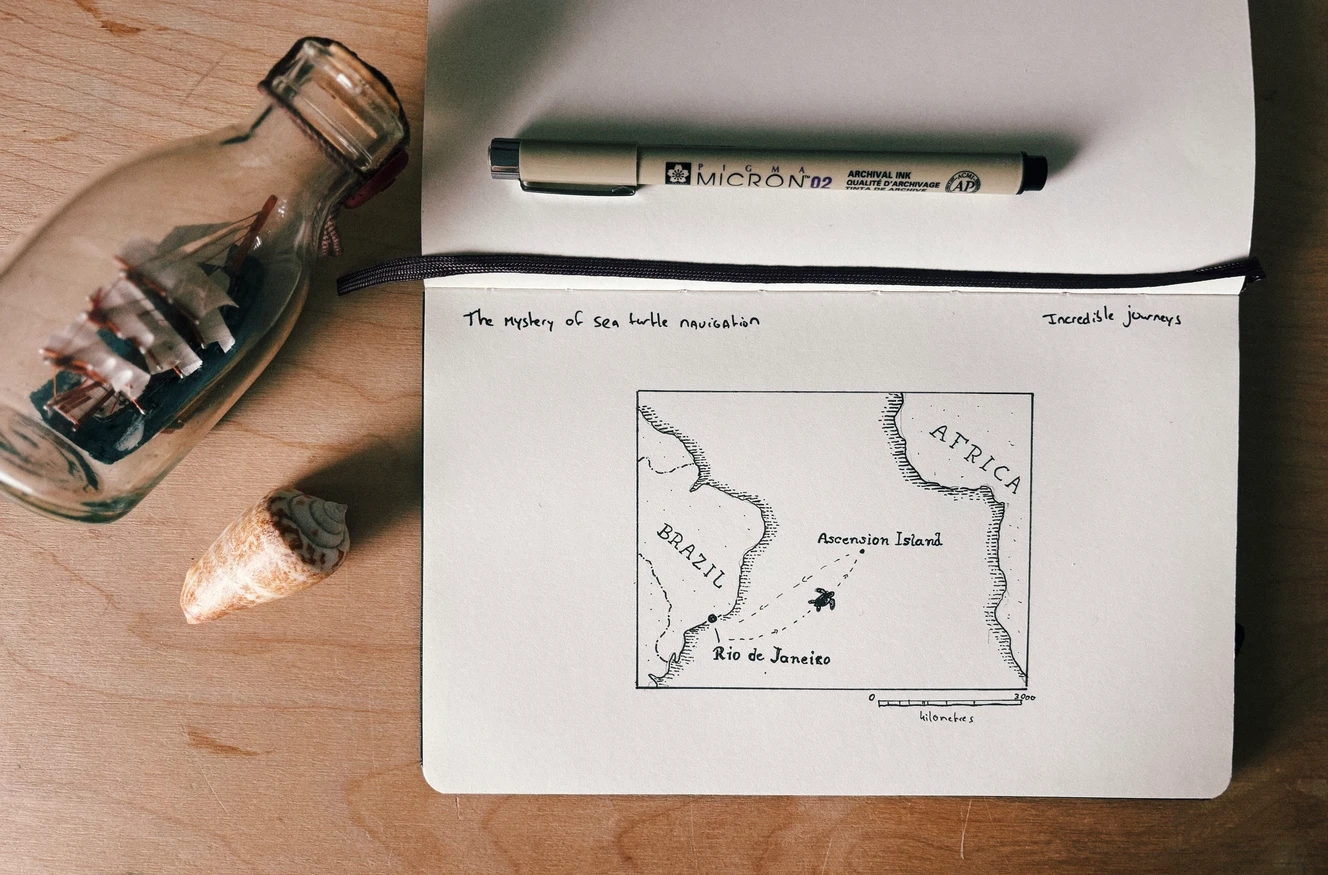 PIGMA
MICRON™02
ARCHIVAL INK
QUALITÉ D'ARCHIVAGE
TINTA DE ARCHIVE
ACME
AP
The mystery of sea turtle navigation
Incredible journeys
AFRICA
Ascension Island
BRAZIL
Rio de Janeiro
0 3000
kilometres